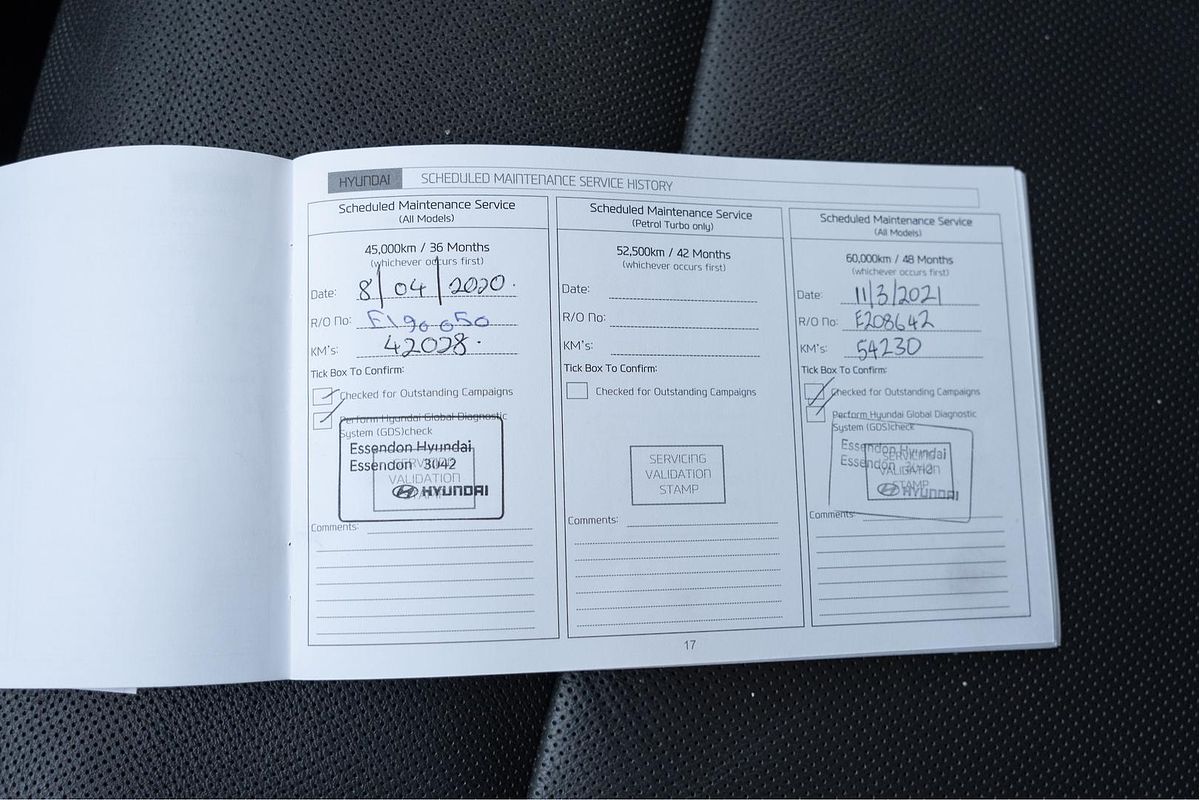 HYUNDAI SCHEDULED MAINTENANCE SERVICE HISTORY
Scheduled Maintenance Service
(All Models)
45,000km / 36 Months
(whichever occurs first)
Date: 8/04/2020.
R/O No: E190050
KM's: 42028.
Tick Box To Confirm:
Checked for Outstanding Campaigns
Perform Hyundai Global Diagnostic
System (GDS)check
Essendon Hyundai
Essendon 3042
HYUNDAI
SERVICING
VALIDATION
STAMP
Comments:
Scheduled Maintenance Service
(Petrol Turbo only)
52,500km / 42 Months
(whichever occurs first)
Date:
R/O No:
KM's:
Tick Box To Confirm:
Checked for Outstanding Campaigns
SERVICING
VALIDATION
STAMP
Comments:
Scheduled Maintenance Service
(All Models)
60,000km / 48 Months
(whichever occurs first)
Date: 11/3/2021
R/O No: E208642
KM's: 54230
Tick Box To Confirm:
Checked for Outstanding Campaigns
Perform Hyundai Global Diagnostic
System (GDS)check
Essendon Hyundai
Essendon 3042
HYUNDAI
SERVICING
VALIDATION
STAMP
Comments:
17